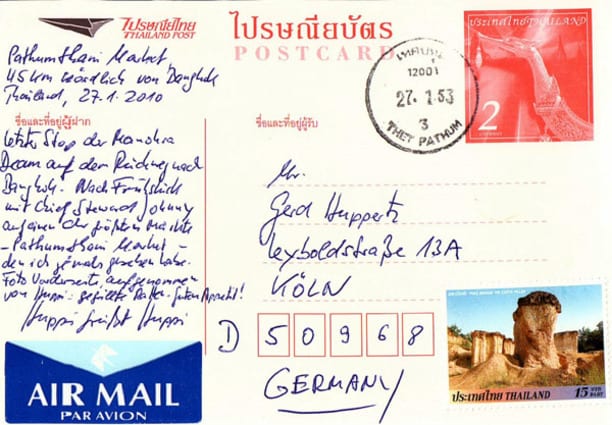 ไปรษณีย์ไทย
THAILAND POST
ไปรษณียบัตร
POSTCARD
ประเทศไทย THAILAND
2
12001
27. 1.53
3
THET PATHUM
Pathumthani Market,
45 km nördlich von Bangkok
Thailand, 27.1.2010
ชื่อและที่อยู่ผู้ฝาก
letzter Stop der Manohra
Dream auf dem Rückweg nach
Bangkok. Nach Frühstück
mit Chief Steward Johnny
auf einen der größten Märkte
- Pathumthani Market -
den ich jemals gesehen habe.
Foto Vorderseite, aufgenommen
von Huppi: gefüllte Ratten. Guten Appetit!
Huppi grüßt Huppi
ชื่อและที่อยู่ผู้รับ
Mr.
Gerd Huppertz
Leyboldstraße 13A
KÖLN
D 50968
GERMANY
AIR MAIL
PAR AVION
ประเทศไทย THAILAND
15 บาท
BAHT